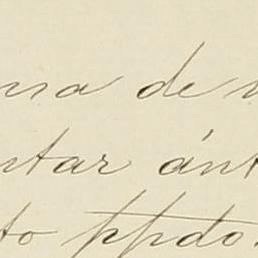 nsa de
ntar ánt
to ppdo.